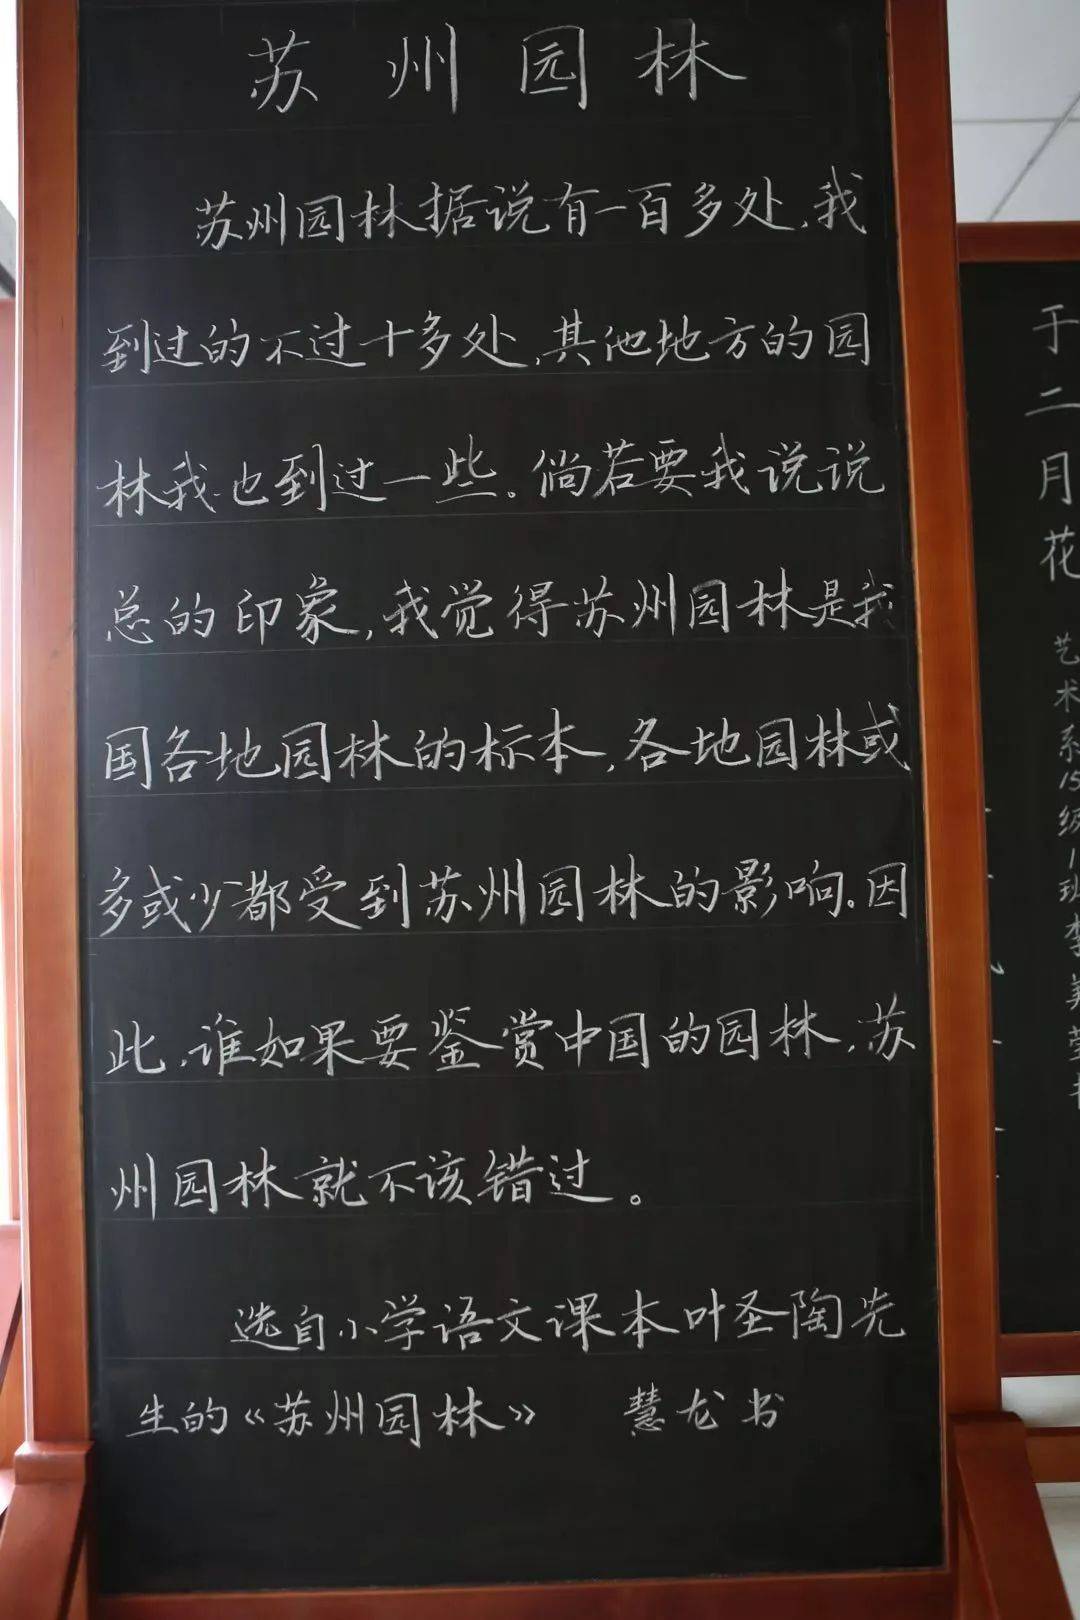 苏州园林
苏州园林据说有一百多处,我
到过的不过十多处,其他地方的园
林我也到过一些。倘若要我说说
总的印象,我觉得苏州园林是我
国各地园林的标本,各地园林或
多或少都受到苏州园林的影响。因
此,谁如果要鉴赏中国的园林,苏
州园林就不该错过。
选自小学语文课本叶圣陶先
生的《苏州园林》 慧龙书
于二月花
艺术系15级1班李美莹书